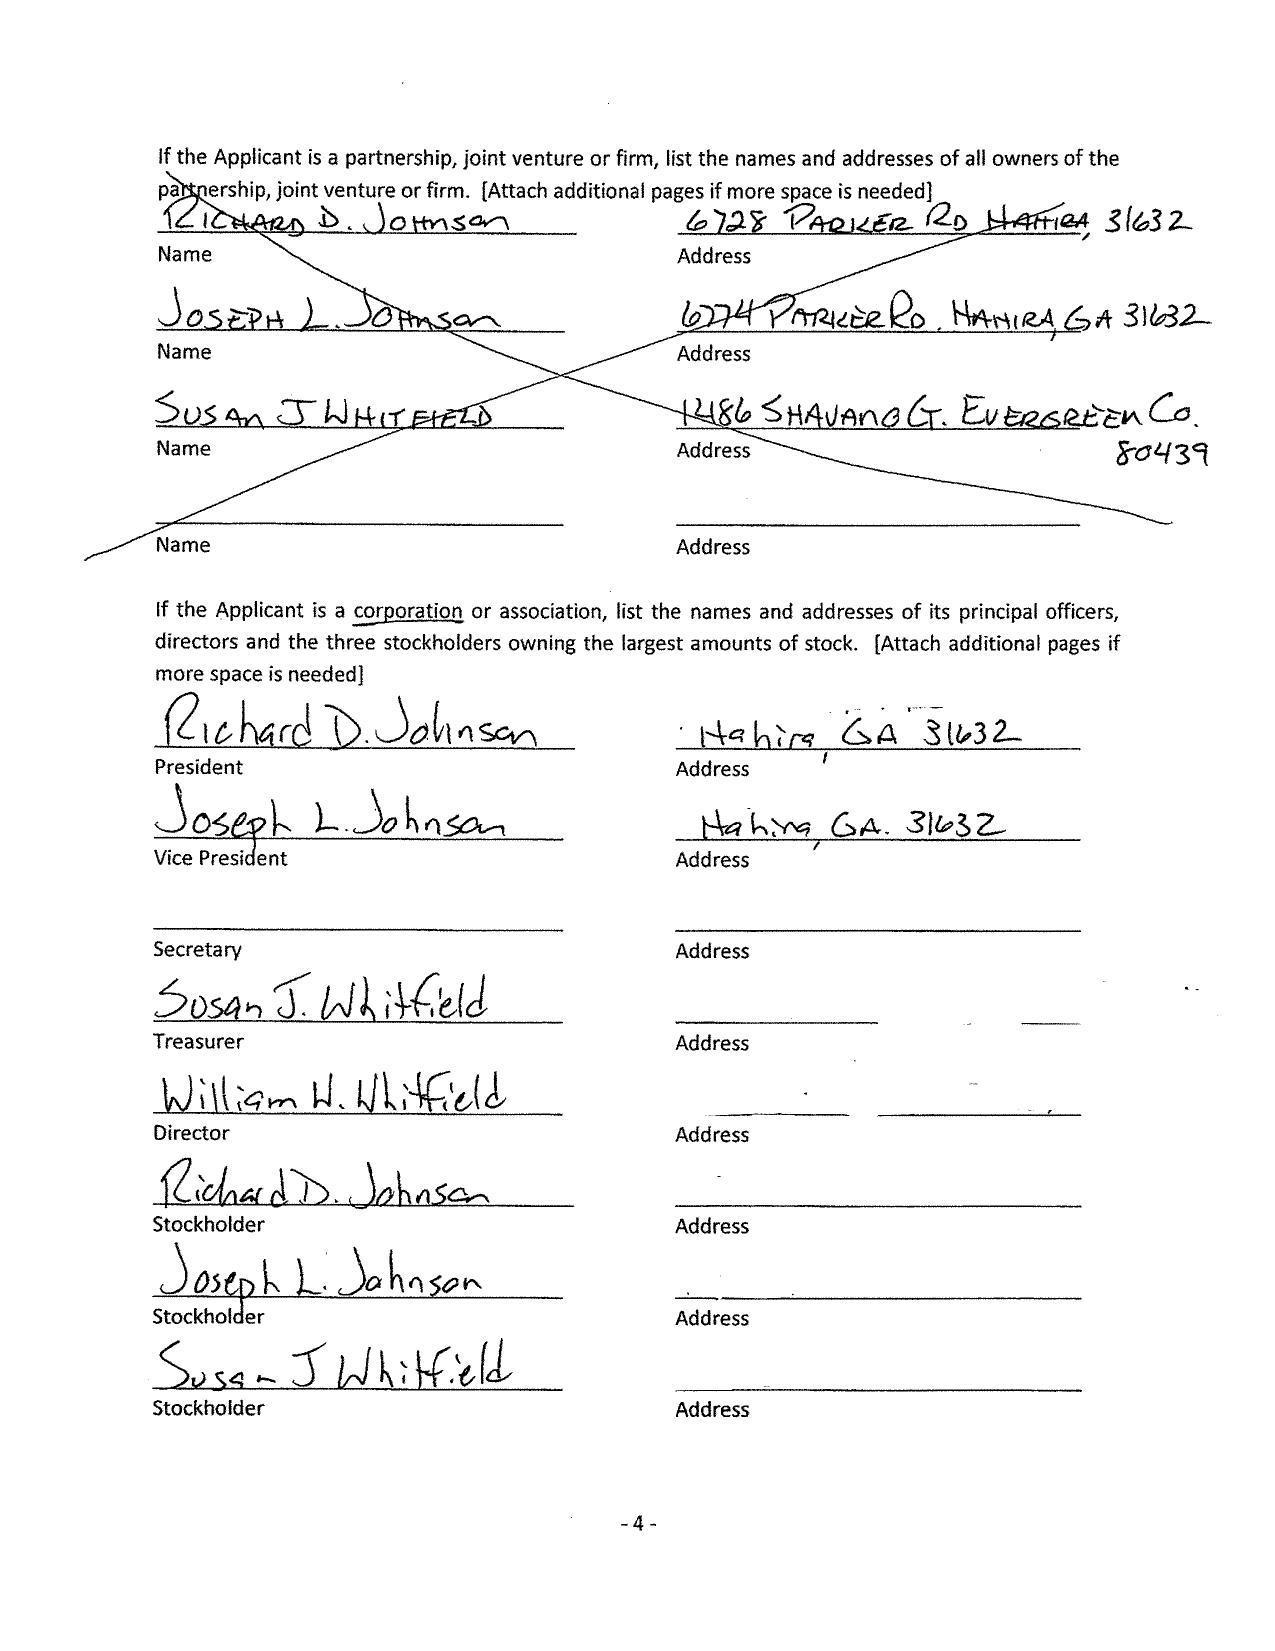 If the Applicant is a partnership, joint venture or firm, list the names and addresses of all owners of the
partnership, joint venture or firm. [Attach additional pages if more space is needed]
RICHARD D. JOHNSON 6728 PARKER RD HAHIRA, 31632
Name Address
JOSEPH L. JOHNSON 6774 PARKER RD. HAHIRA, GA 31632
Name Address
SUSAN J WHITFIELD 1486 SHAVANO CT. EVERGREEN CO.
Name Address 80439
Name Address
If the Applicant is a corporation or association, list the names and addresses of its principal officers,
directors and the three stockholders owning the largest amounts of stock. [Attach additional pages if
more space is needed]
Richard D. Johnson Hahira, GA 31632
President Address
Joseph L. Johnson Hahira, GA. 31632
Vice President Address
Secretary Address
Susan J. Whitfield
Treasurer Address
William W. Whitfield
Director Address
Richard D. Johnson
Stockholder Address
Joseph L. Johnson
Stockholder Address
Susan J Whitfield
Stockholder Address
- 4 -